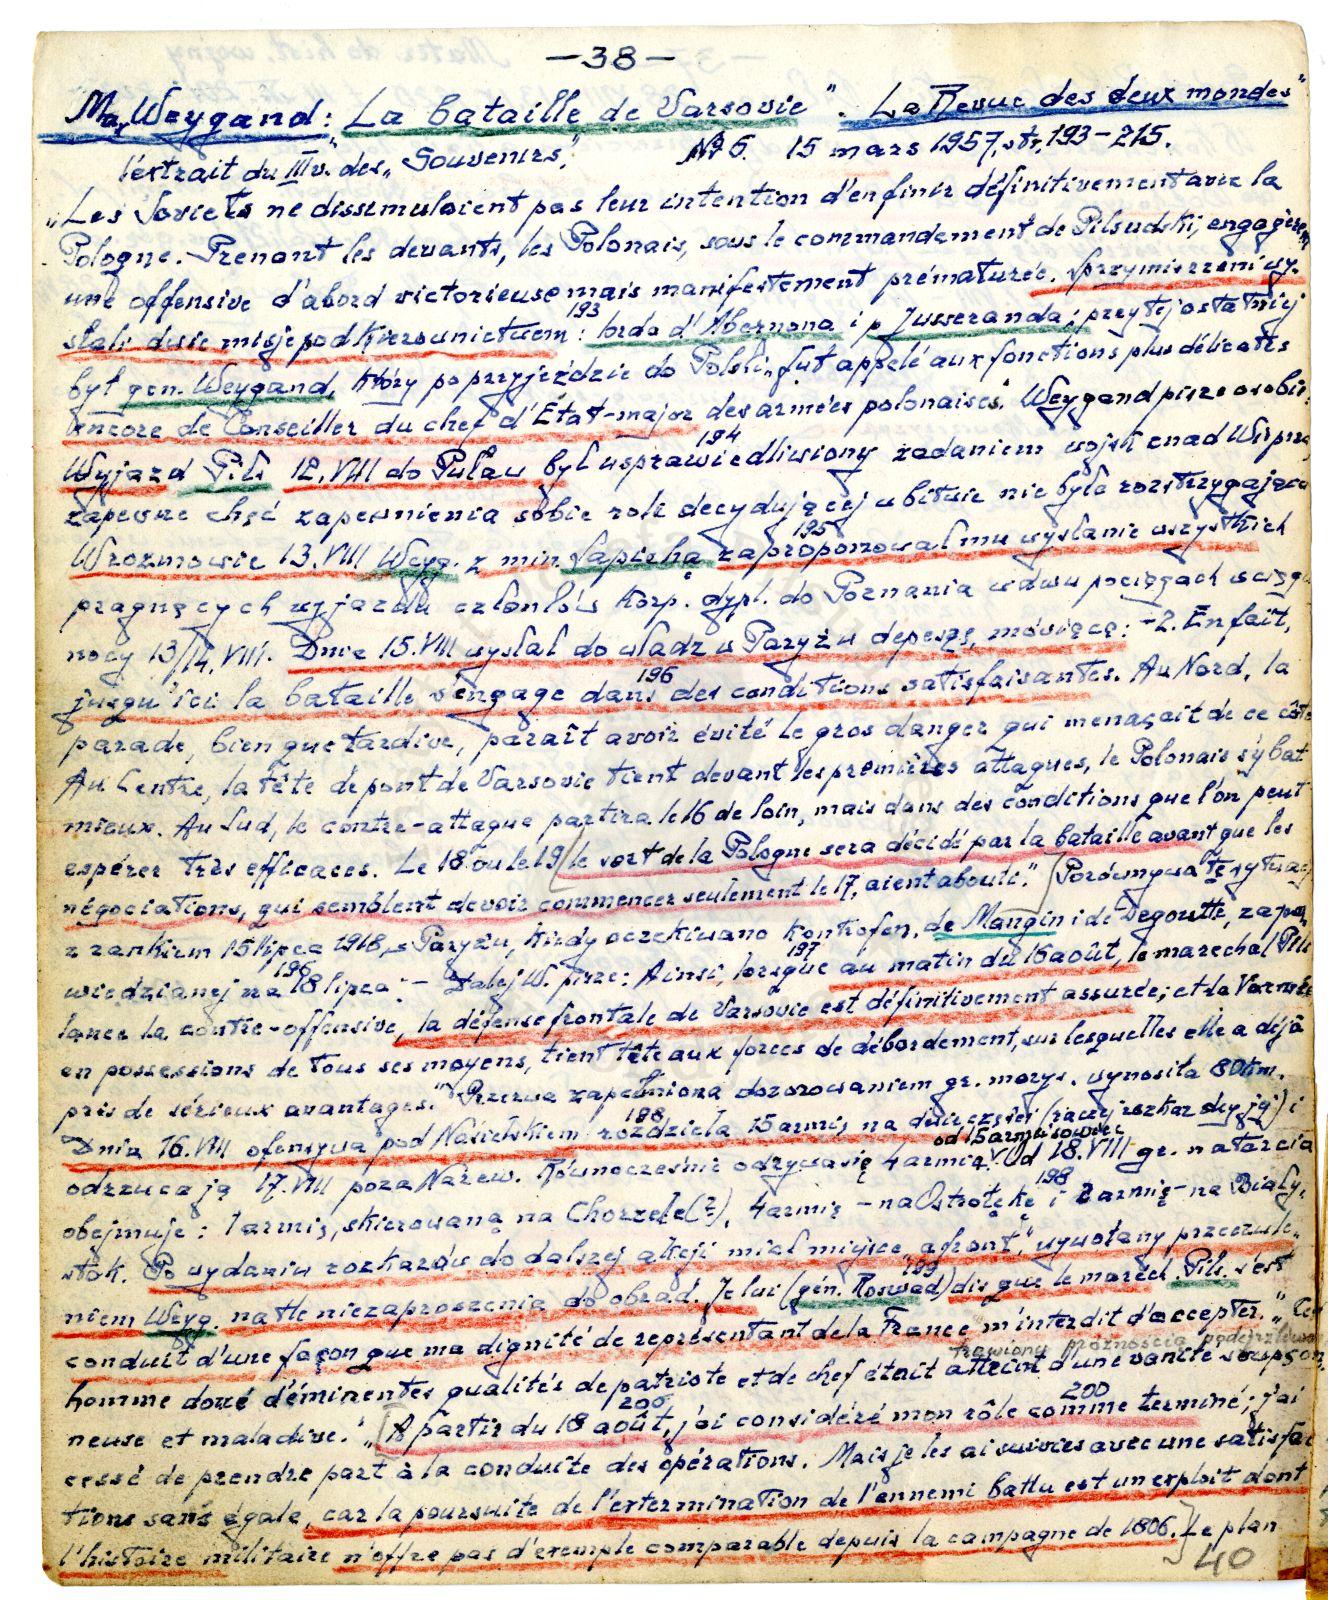 — 38 —
Ma. Weygand: „La bataille de Varsovie". „La Revue des deux mondes"
l'extrait du III v. des „Souvenirs", № 6. 15 mars 1957, str. 193-215.
„Les Soviets ne dissimulaient pas leur intention d'enfinir définitivement avec la
Pologne. Prenant les devants, les Polonais, sous le commandement de Pilsudski, engagèrent
une offensive d'abord victorieuse mais manifestement prématurée. Sprzymierzeni wy-
193
słali dwie misje pod kierownictwem: lorda d'Abernona i p Jusseranda; przy tej ostatniej
był gen. Weygand, który po przyjeździe do Polski „fut appelé aux fonctions plus délicates
encore de Conseiller du chef d'État-major des armées polonaises." Weygand pisze o sobie,
194
Wyjazd Piłs 12.VIII do Puław był usprawiedliwiony zadaniem wojsk znad Wieprza
zapewne chęć zapewnienia sobie roli decydującej w bitwie nie była rozstrzygająca
195
W rozmowie 13.VIII Weyg. z min. Sapiehą zaproponował mu wysłanie wszystkich
pragnących wyjazdu członków korp. dypl. do Poznania w dwu pociągach w ciągu
nocy 13/14.VIII. Dnia 15.VIII wysłał do władz w Paryżu depeszę, mówiącą: -2. En fait,
196
jusqu'ici la bataille s'engage dans des conditions satisfaisantes. Au Nord, la
parade, bien que tardive, paraît avoir évité le gros danger qui menaçait de ce côté
Au Centre, la tête de pont de Varsovie tient devant les premières attaques, le Polonais s'y bat
mieux. Au Sud, le contre-attaque partira le 16 de loin, mais dans des conditions que l'on peut
espérer très efficaces. Le 18 ou le 19 [le sort de la Pologne sera décidé par la bataille avant que les
négociations, qui semblent devoir commencer seulement le 17, aient abouti."] Porównywa tę sytuację
z rankiem 15 lipca 1918, w Paryżu, kiedy oczekiwano kontrofen. de Mangin i de Degoutte, zapo-
196 197
wiedzianej na 18 lipca. — Dalej W. pisze: Ainsi, lorsque au matin du 16 août, le marechal Pils
lance la contre-offensive, la défense frontale de Varsovie est définitivement assurée; et la Varsovie
en possessions de tous ses moyens, tient tête aux forces de débordement, sur lesquelles elle a déjà
pris de sérieux avantages." Przerwa zapełniona dozorowaniem gr. manys. wynosiła 80 km.
198
Dnia 16.VIII ofensywa pod Nasielskiem rozdziela 15 armię na dwie części (raczej rozkaz dzy ją) i
od 15 armji sowiec
odrzuca ją 17.VIII poza Narew. Równocześnie odrywa się 4 armia. Od 18.VIII gr. natarcia
198
obejmuje: 1 armię, skierowaną na Chorzele(?), 4 armię - na Ostrołękę i 2 armię - na Biały-
stok. Po wydaniu rozkazów do dalszej akcji miał miejsce „afront", wywołany przeczule-
199
niem Weyg. na tle niezaproszenia do obrad. Je lui (gén. Rozwad) dis que le maréch. Pils. s'est
conduit d'une façon que ma dignité de représentant de la France m'interdit d'accepter." „Cet
trawiony próżnością podejrzliwą
homme doué d'éminentes qualités de patriote et de chef était atteint d'une vanité soupçon-
200 200
neuse et maladive." „[A partir du 18 août, j'ai considéré mon rôle comme terminé; j'ai
cessé de prendre part à la conduite des opérations. Mais je les ai suivies avec une satisfac
tions sans égale, car la poursuite de l'extermination de l'ennemi battu est un exploit dont
l'histoire militaire n'offre pas d'exemple comparable depuis la campagne de 1806.] Le plan
40